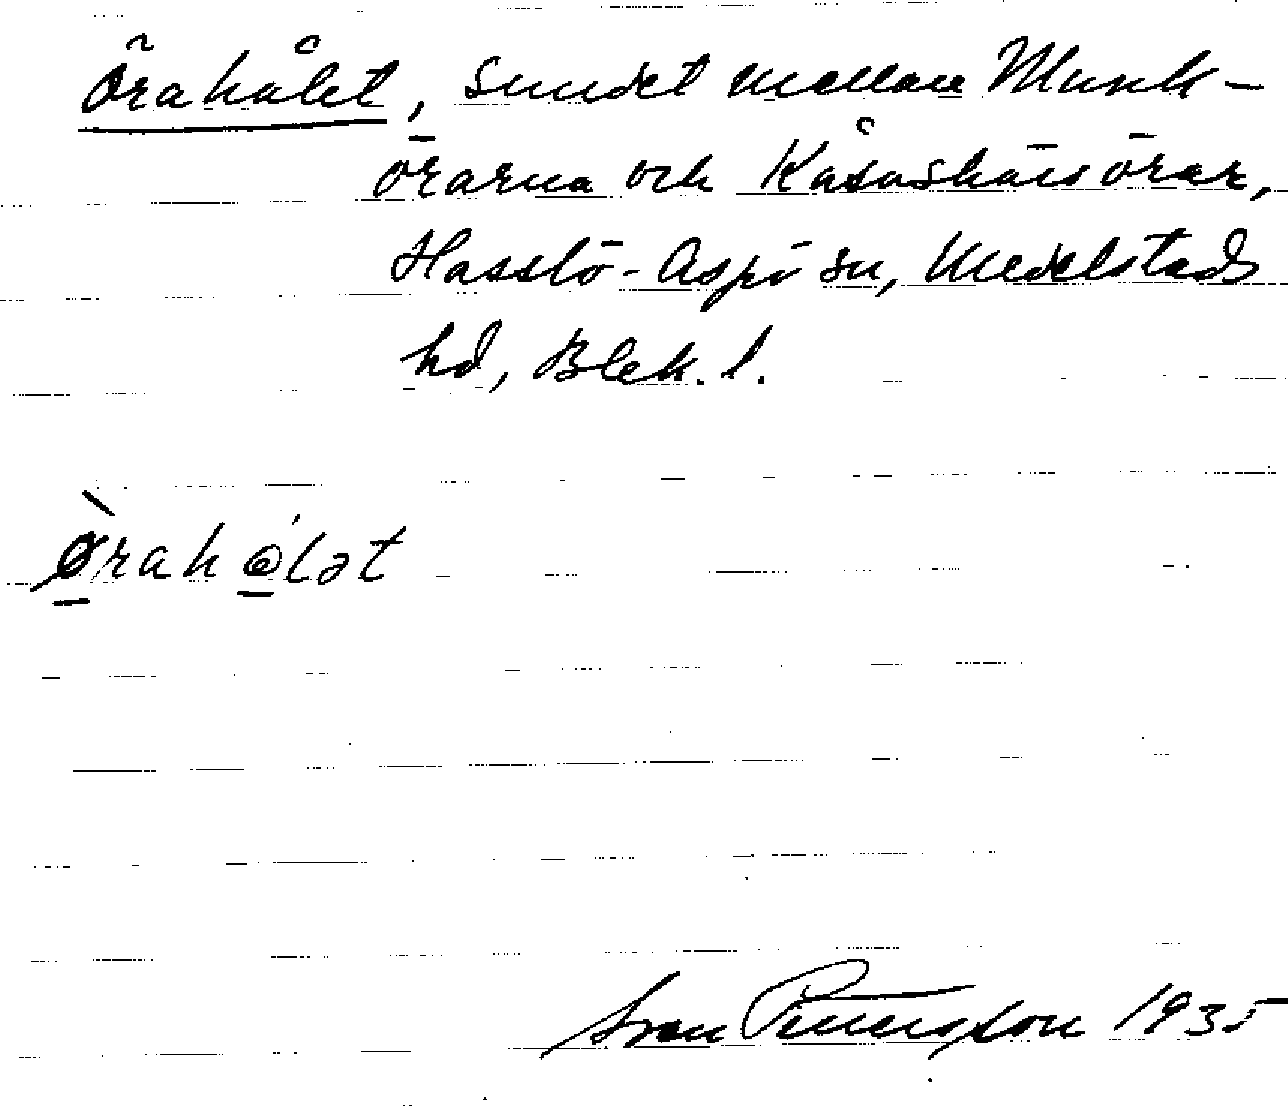 Örahålet, sundet mellan Munk-
örarna och Kåsaskärsörar,
Hasslö-Aspö sn, Medelstads
hd, Blek. l.
Ø̀rahǫ́lət
Sven Petersson 1935